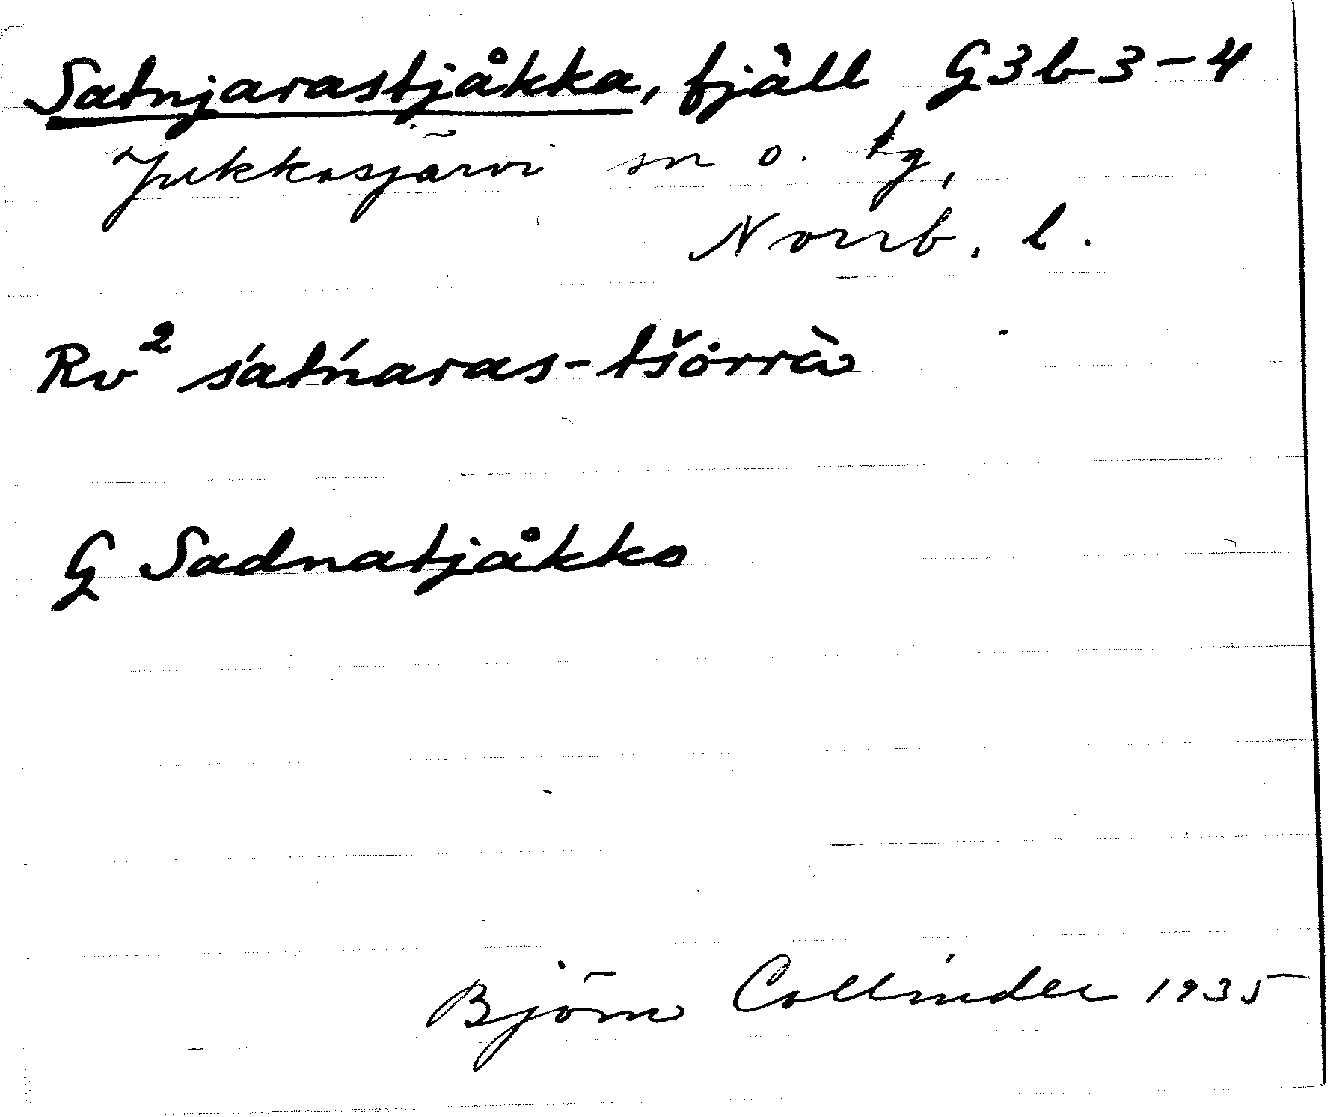 Satnjarastjåkka, fjäll G3b3-4
Jukkasjärvi sn o. tg,
Norrb. l.
Rv² śatńaras-tšårrà
G Sadnatjåkko
Björn Collinder 1935